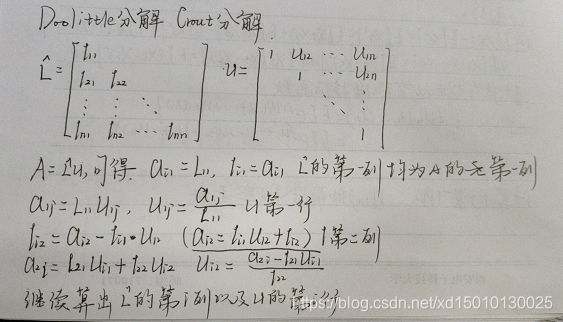 Doolittle分解 Crout分解
L̂ = [ l11 ; l21 l22 ; ⋮ ⋮ ⋱ ; ln1 ln2 ⋯ lnn ] u = [ 1 u12 ⋯ u1n ; 1 ⋯ u2n ; ⋱ ⋮ ; 1 ]
A=L̂u,可得 ai1=L11, li1=ai1 L̂的第一列均为A的第一列
a1j=L11u1j, u1j=a1j/L11 u第一行
li2=ai2-li1·u12 (ai2=li1u12+li2) l第二列
a2j=l21u1j+l22u2j ui2=(a2j-l21u1j)/l22
继续算出L̂的第i列以及u的第i行
https://blog.csdn.net/xd15010130025